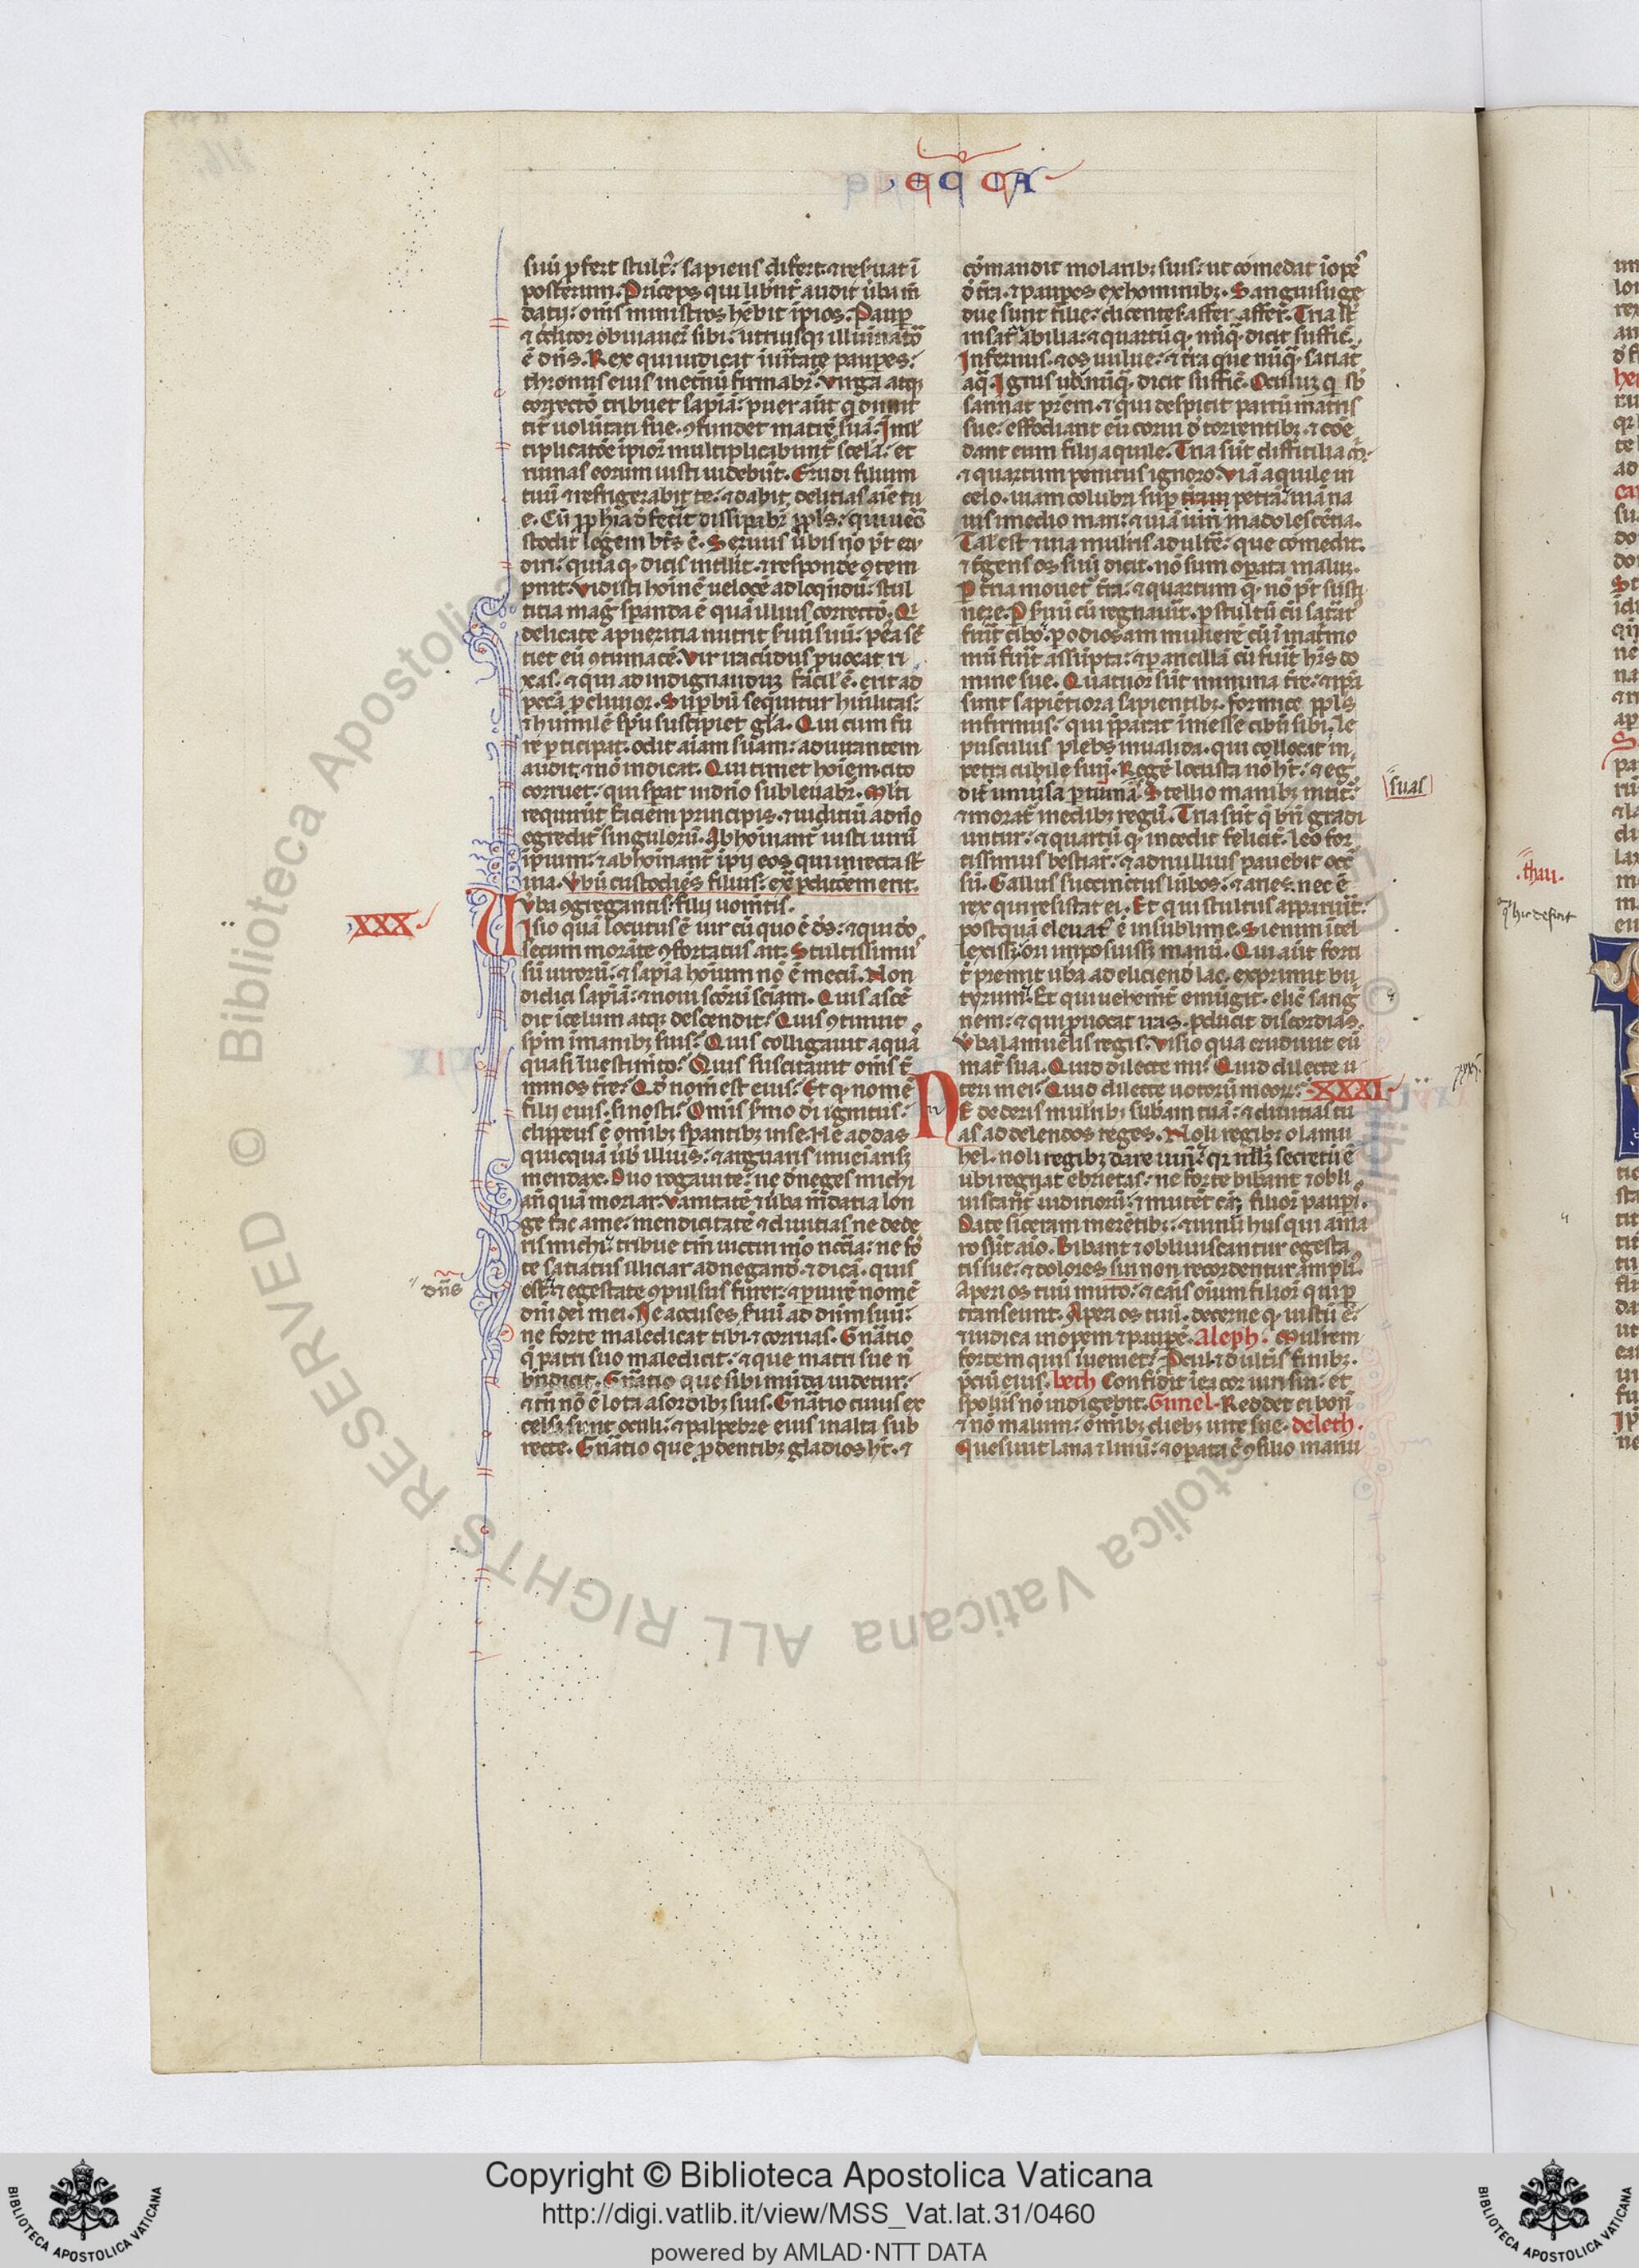 suū ꝓfert stultꝰ: sapiens differt ⁊ reſuat ī
posterum. Princeps qui libēnt̄ audit ūba m̄
datii: om̄s ministros hēbit īpios. Paup̄
⁊ c̄ditor obuiauer̄ sibi: utriusqꝫ illuminatō
ē dn̄s. Rex qui iudicat ī ūitate pauꝑes:
thronus eius inet̄nū firmabr̄. Virga atqꝫ
correctō tribuet sapiā: puer aūt q̄ dimit
tit̄ uolūtati sue. ꝯfundet matrē suā. In ml̄
tiplicatōe īpior̄ multiplicabunt̄ scela: et
ruinas eorum iusti uidebūt. Erudi filium
tuū ⁊ refrigerabit te: ⁊ dabit delitias aīe tu
e. Cū ꝓph̄ia defec̄it dissipabr̄ ppl̄s: qui ueō
stodit legem bt̄s ē. Seruus ūbis nō pt̄ eru
diri: quia qꝫ dicis intell̄it ⁊ respondē ꝯtem
pnit. Vidisti hoīnē uelocē ad loq̄ndū: stul
titia mag̃ sperāda ē quā illius correctō. Qͥ
delicate a pueritia nutrit s̄uū suū: pea sē
tiet eū ꝯtumacē. Vir iracūdus ꝓuocat ri
xas: ⁊ qui ad indignanduꝫ facil̄ ē. erit ad
pccā ꝓcliuior. Suꝑbū sequitur hūilitas:
⁊ humilē sp̄u suscipiet gl̄a. Qui cum fu
re ꝑticipat: odit aīam suam: adiurantem
audit ⁊ nō indicat. Qui timet hoīem cito
corruet: qui sperat in dn̄o subleuabr̄. Ml̄ti
requirūt faciem principis: ⁊ iuditiū a dn̄o
egredit̄ singulorū. Abhoīnant̄ iusti uirū
īpium: ⁊ abhoīnant̄ īpii eos qui in recta s̄t
uia. Vbū custodiēs filius: ext̄ ꝑditōem erit.
Vba ꝯgregantis filii uomētis.
XXX.
Visio quā locutus ē uir cū quo ē ds̄: ⁊ qui dō
secum morāte ꝯfortatus ait: Stultissimus
sū uirorū: ⁊ sapīa hoīum nō ē mecū. Non
didici sapiā: ⁊ noui sc̄orū sciam. Quis ascē
dit ī celum atqꝫ descendit? Quis ꝯtinuit
sp̄m ī manibꝫ suis? Quis colligauit aquā
quasi ī uestimēto? Quis suscitauit om̄s t̄
minos tr̄e? Qd̄ nom̄ est eius? Et qꝫ nomē
filii eius si nosti? Omīs s̄mo di ignitus:
clippeus ē omībꝫ sperantibꝫ in se. Ne addas
quicquā ūbis illius: ⁊ arguaris inueiarisqꝫ
mendax. Duo rogaui te: ne deneges michi
an̄quā moriar. Vanitatē ⁊ ūba mēdatia lon
ge fac a me: mendicitatē ⁊ diuitias ne dede
ris michi: tribue tm̄ uictui meo nc̄cia: ne for
te satiatus illiciar ad negand̄. ⁊ dicā. quis
dn̄s
est: ⁊ egestate ꝯpulsus furer: ⁊ ꝑiurē nomē
dn̄i dei mei. Ne accuses s̄uū ad dn̄m suū:
ne forte maledicat tibi ⁊ corruas. Gn̄atio
q̄ patri suo maledicit: ⁊ que matri sue n̄
bn̄dicit. Gn̄atio que sibi mūda uidetur:
⁊ tm̄ nō ē lota a sordibꝫ suis. Gn̄atio cuius ex
celsi sunt oculi: ⁊ palpebre eius in alta sub
recte. Gn̄atio que ꝓ dentibꝫ gladios h̄t. ⁊
comandit molaribꝫ suis: ut comedat īopeˢ
d̄ tr̄a. ⁊ pauꝑes ex hominibꝫ. Sanguisuge
due sunt filie: dicentes affer affer. Tria s̄t
insat̄abilia: ⁊ quartū qꝫ nūq̄ dicit sufficit.
Infernus. ⁊ os uulue: ⁊ tr̄a que nūq̄ satiat̄
aq̄. Ignis ūo nūq̄ dicit sufficit. Oculuꝫ q̄ sb̄
sannat pr̄em. ⁊ qui despicit partū matris
sue: effodiant eū corui d̄ torrentibꝫ. ⁊ coē
dant eum filii aquile. Tria sūt difficilia m̄:
⁊ quartum penitus ignoro. Viā aquile in
celo. uiam colubri suꝑ petrā. uiā na
uis ī medio mari: ⁊ uiā uiri in adolescētia.
Talis est ⁊ uia mulieris adultē: que comedit.
⁊ t̄gens os suū dicit. nō sum oꝑata malū.
Per tria mouet̄ tr̄a: ⁊ quartum qꝫ nō pt̄ susti
nere. Per s̄uū cū regnauit: ꝑ stultū cū satat̄
fuīt cibo. ꝑ odiosam mulierē cū ī mat̄mo
nū fuīt assūpta: ⁊ ꝑ ancillā cū fuīt hēs do
mine sue. Quatuor sūt minima tr̄e: ⁊ ip̄a
sunt sapiētiora sapientibꝫ. formice ppl̄s
infirmus: qui p̄parat ī messe cibū sibi. Le
pusculus plebs inualida. qui collocat in
petra cubile suū. Regē locusta nō h̄t: ⁊ eg
dit̄ uniuersa ꝑ turmā. Stellio manibꝫ nitit̄:
suas
⁊ morat̄ in edibꝫ regū. Tria sūt q̄ bn̄ gradi
untur: ⁊ quartū qꝫ incedit felicit̄. Leo for
tissimus bestiar̄: ⁊ ad nullius pauebit occ̄
sū. Gallus succinctus lūbos: ⁊ aries. nec ē
rex qui resistat ei. Et qui stultus apparuit:
postquā eleuat̄ ē in sublime. Si enim ītel
lexissꝫ. ori imposuissꝫ manū. Qui aūt forti
t̄ premit ubera ad eliciend̄ lac. exprimit bu
tyrum. Et qui uehem̄t̄ emūgit. elic̄ sang
nem: ⁊ qui ꝓuocat iras. ꝓducit discordias.
Vba lamuelis regis. Visio qua erudiuit eū
mat̄ sua. Quid dilecte mi? Quid dilecte u
teri mei? Quid dilecte uotorū meor̄?
XXXI.
Ne dederis mulieribꝫ subam tuā: ⁊ diuitias tu
as ad delendos reges. Noli regibꝫ o lamu
hel. noli regibꝫ dare uinū: qr̄ nllꝫ secretū ē
ubi regnat ebrietas: ne forte bibant ⁊ obli
uiscant̄ iuditiorū: ⁊ mutēt cām filior̄ pauꝑi.
Date siceram merētibꝫ: ⁊ uinū hiis qui ama
ro sūt aīo. Bibant ⁊ obliuiscantur egesta
tis sue: ⁊ doloris sui non recordentur āpliꝰ.
Aperi os tuū muto: ⁊ cāis oīum filior̄ qui ꝑ
transeunt. Aperi os tuū. decerne qꝫ iustū ē:
⁊ iudica inopem ⁊ pauꝑē. Aleph. Mulierem
fortem quis īueniet? Procul ⁊ d̄ ultīs finibꝫ.
p̄ciū eius. beth Confidit ī ea cor uiri sui: et
spoliis nō indigebit. Gimel. Reddet ei bonū
⁊ nō malum: omībꝫ diebꝫ uite sue. deleth.
Quesiuit lanā ⁊ linū: ⁊ oꝑata ē ꝯsilio manu
thau.
hic deficit
Copyright © Biblioteca Apostolica Vaticana
http://digi.vatlib.it/view/MSS_Vat.lat.31/0460
powered by AMLAD·NTT DATA
BIBLIOTECA APOSTOLICA VATICANA
BIBLIOTECA APOSTOLICA VATICANA
© Biblioteca Apostolica Vaticana ALL RIGHTS RESERVED